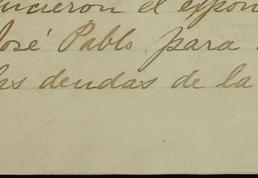 el expon
José Pablo para
las deudas de la